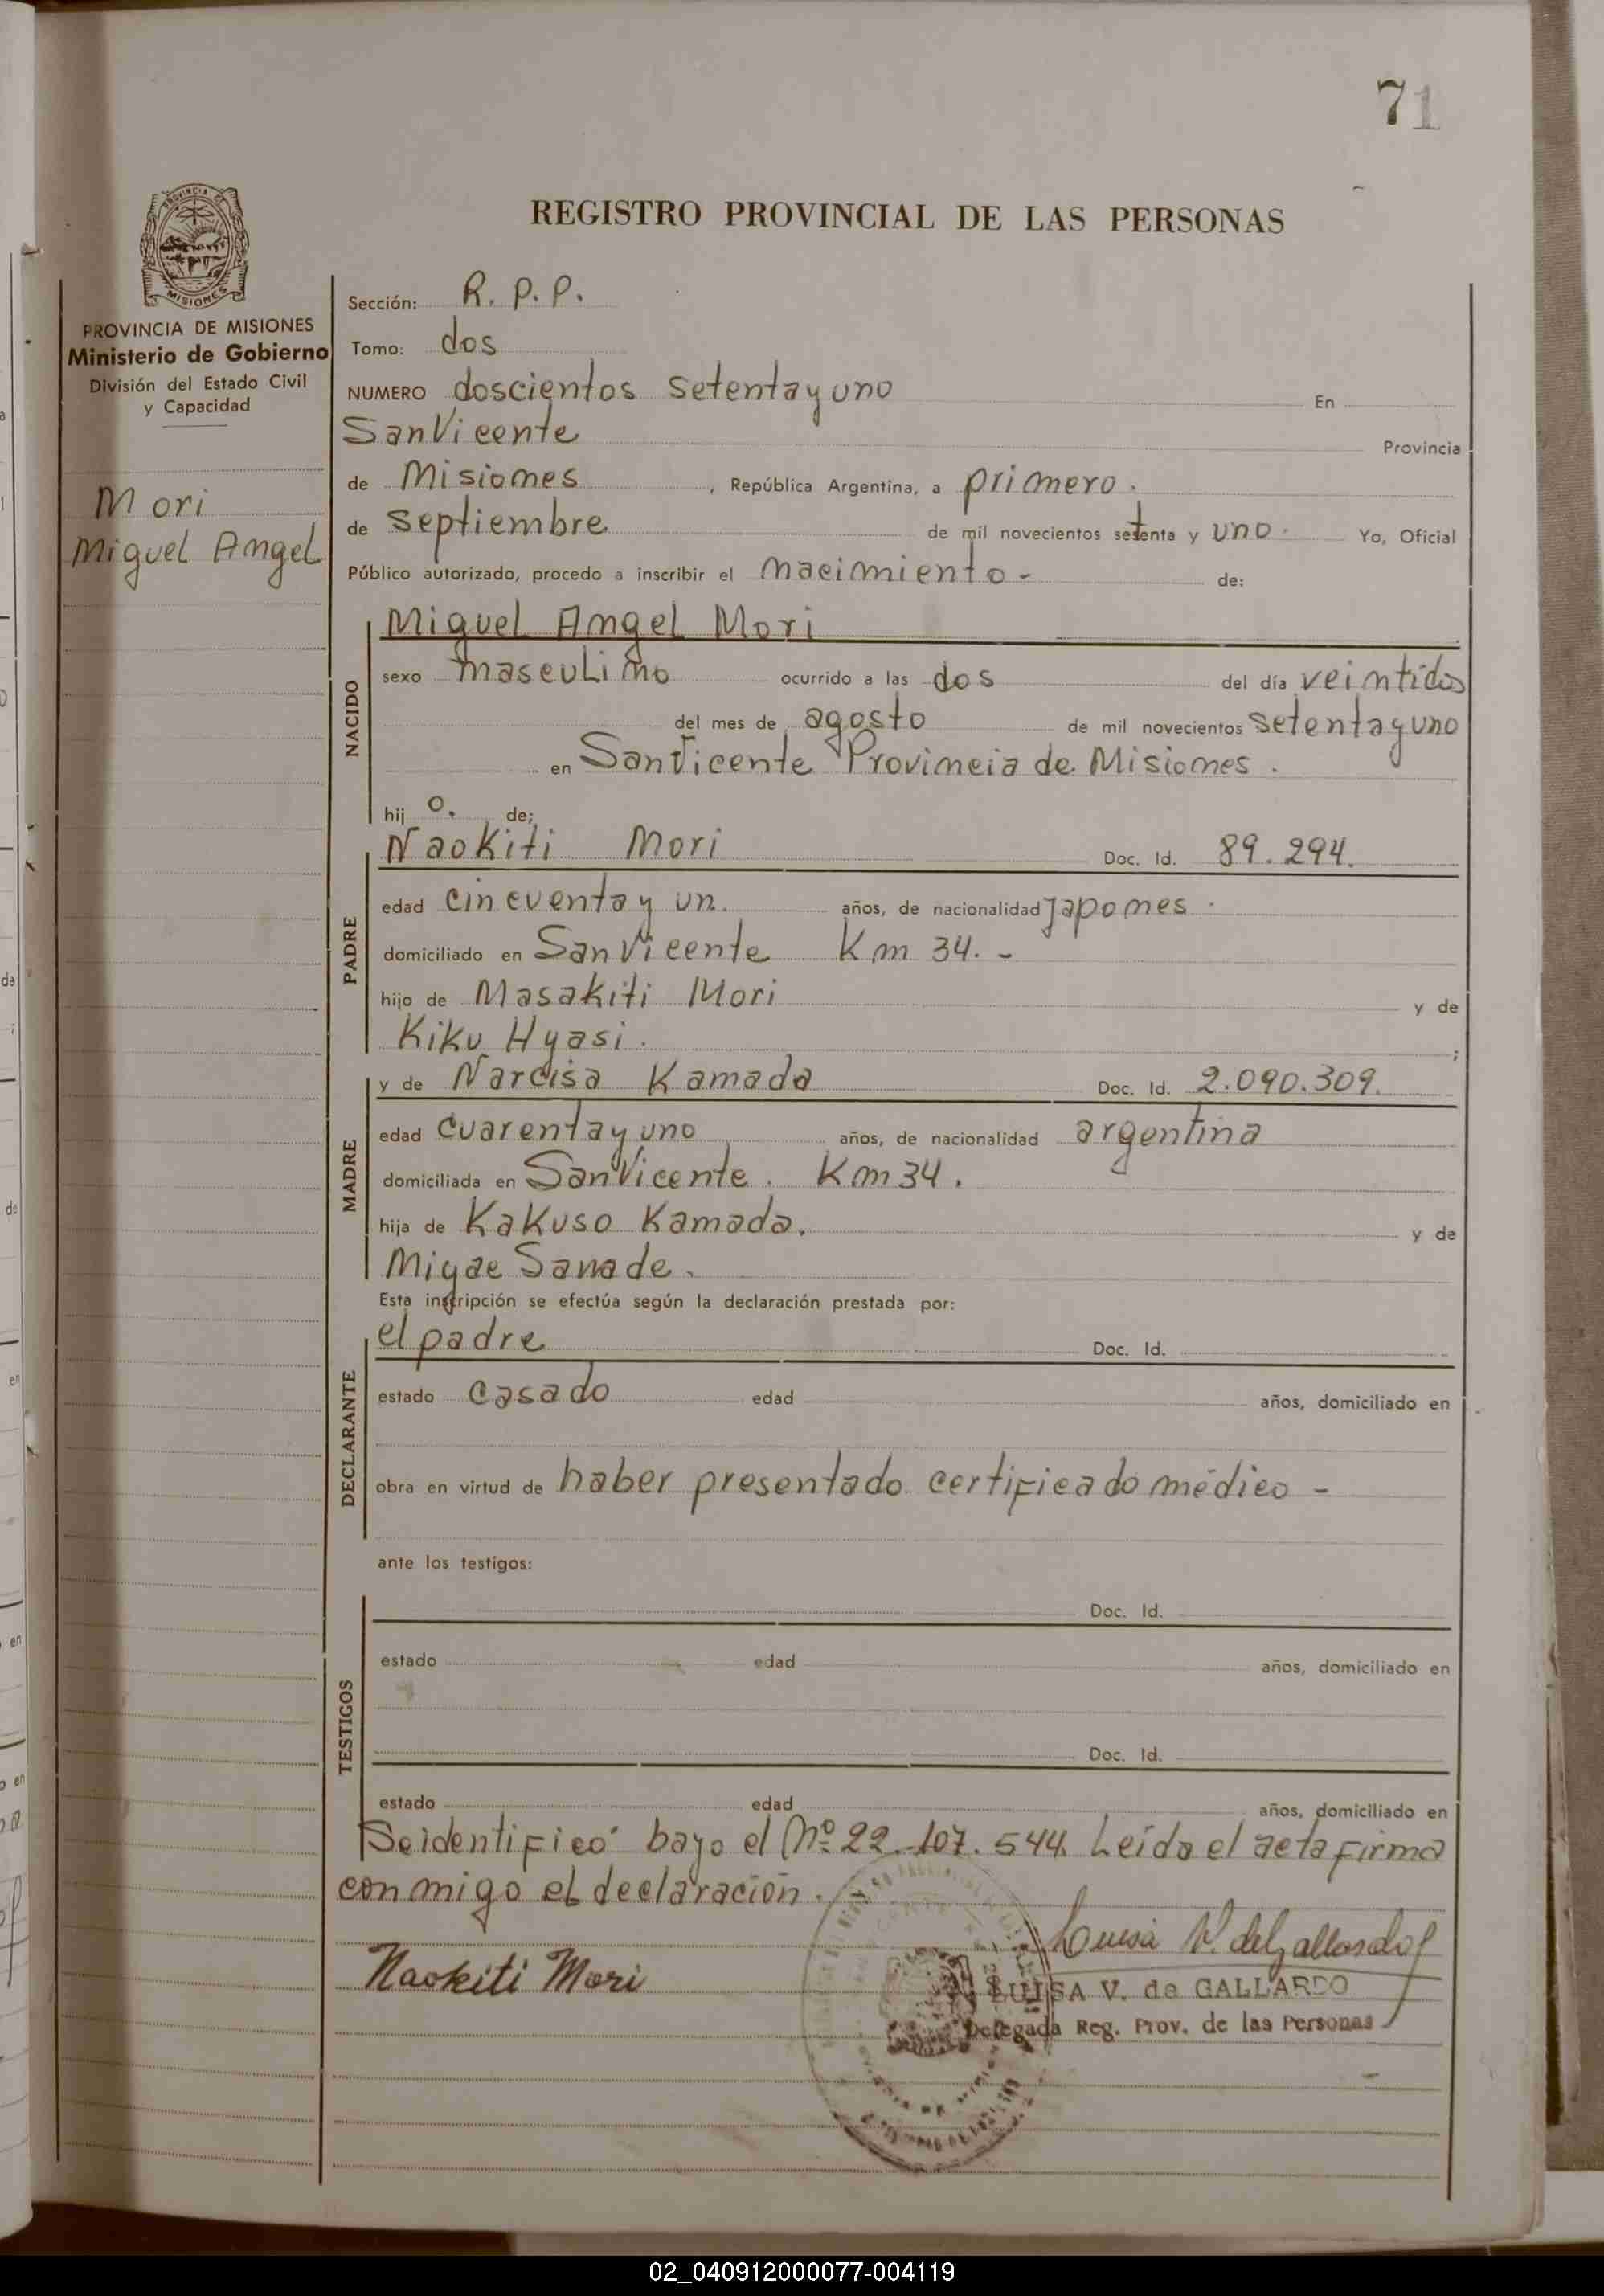 71
REGISTRO PROVINCIAL DE LAS PERSONAS
PROVINCIA
MISIONES
PROVINCIA DE MISIONES
Ministerio de Gobierno
División del Estado Civil
y Capacidad
Mori
Miguel Angel
Sección: R. P. P.
Tomo: dos
NUMERO doscientos setenta y uno En
San Vicente Provincia
de Misiones , República Argentina, a primero.
de septiembre de mil novecientos setenta y uno. Yo, Oficial
Público autorizado, procedo a inscribir el nacimiento - de:
NACIDO
Miguel Angel Mori
sexo masculino ocurrido a las dos del día veintidos
del mes de agosto de mil novecientos setenta y uno
en San Vicente Provincia de Misiones.
hij o. de;
PADRE
Naokiti Mori Doc. Id. 89.294.
edad cincuenta y un. años, de nacionalidad japones.
domiciliado en San Vicente Km 34. -
hijo de Masakiti Mori y de
Kiku Hyasi. ;
MADRE
y de Narcisa Kamada Doc. Id. 2.090.309.
edad cuarenta y uno años, de nacionalidad argentina
domiciliada en San Vicente. Km 34.
hija de Kakuso Kamada. y de
Miyae Sanade.
Esta inscripción se efectúa según la declaración prestada por:
DECLARANTE
el padre Doc. Id.
estado casado edad años, domiciliado en
obra en virtud de haber presentado certificado médico -
ante los testigos:
TESTIGOS
Doc. Id.
estado edad años, domiciliado en
Doc. Id.
estado edad años, domiciliado en
Se identificó bajo el Nº 22.107.544. Leída el acta firma
conmigo el declaración.
Luisa V. de Gallardo
Naokiti Mori
LUISA V. de GALLARDO
Delegada Reg. Prov. de las Personas
02_040912000077-004119